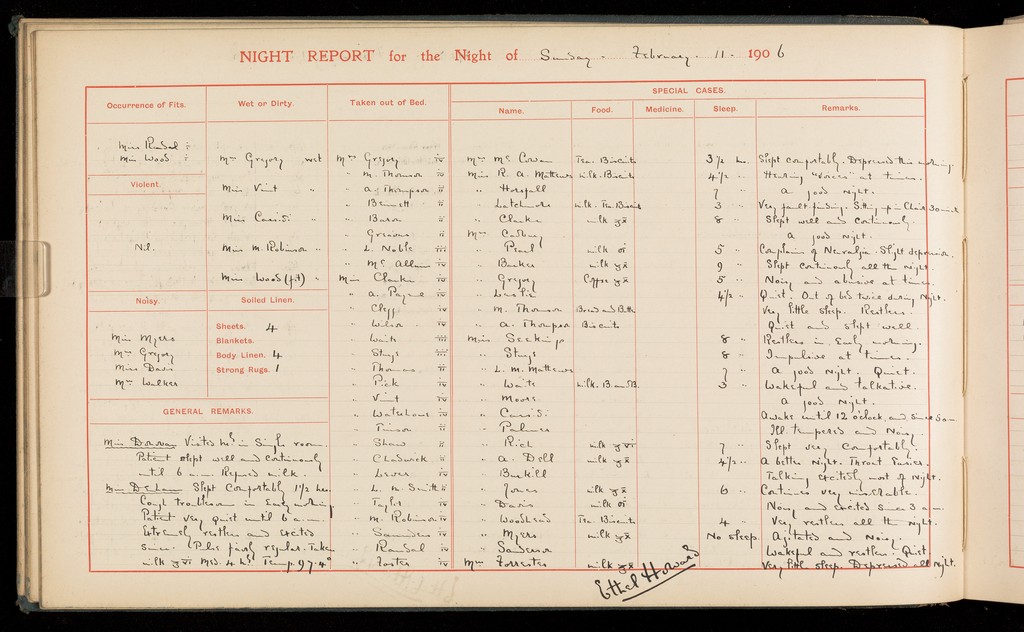 NIGHT REPORT for the Night of Sunday. February. 11. 1906
SPECIAL CASES.
Occurrence of Fits. Wet or Dirty. Taken out of Bed. Name. Food. Medicine. Sleep. Remarks.
Miss Randal ii
Miss Wood i
Violent.
Nil.
Noisy.
Miss Myers
Mrs Gregory
Miss Davis
Mrs Walker
Mrs Gregory wet
Miss Vint "
Miss Cassidi "
Miss M. Robinson "
Miss Wood (fit) "
Soiled Linen.
Sheets. 4
Blankets.
Body Linen. 4
Strong Rugs. 1
GENERAL REMARKS.
Miss Donovan Visited in Single room.
Patient slept well and continuously
until 6 a.m. Refused milk.
Slept Comfortably 1 1/2 hrs.
Cough troublesome in Early morning
Patient very quiet until 6 a.m.
Extremely restless and excited
since. Pulse fairly regular. Taken
milk ℥vi Med. 4 Temp. 97.4°
Mrs Gregory iv
" M. Thomson iv
" A. Thompson ii
" Bennett ii
" Baron ii
" Greaves ii
" L. Noble iii
" Mc Allum iv
Miss Clarke iv
" A. Payne iv
" Clegg iv
" Wilson iv
" Waite iii
" Stuys iii
" Thomas ii
" Pick iv
" Vint iv
" Waterhouse iv
" ii
" Shaw ii
" Chadwick ii
" Lever ii
" L. M. Smith ii
" Taylor iv
" M. Robinson iv
" Saunders iv
" Randal iv
" Foster iv
Mrs Mc Cowan Tea. Biscuits 3 1/2 hrs. Slept comfortably. Depressed this morning.
Miss R. A. Mathews milk. Biscuits 4 1/2 " Hearing "voices" at times.
" Horsfall 7 " A good night.
" Latchmore milk. Tea Biscuits 3 " Very fault finding. Sitting up in Chair 30 mins
" Clarke milk ℥x 8 " Slept well and continuously.
Mrs Cadbury A good night.
" Pearl milk 5 " Complains of Neuralgia. Slight depression.
" Barker milk ℥x 9 " Slept continuously all the night.
" Gregory Coffee ℥x 5 " Noisy and abusive at times.
" Leslie 4 1/2 " Quiet. Out of bed twice during night.
" M. Thomson Bread and Butter Very little sleep. Restless.
" A. Thompson Biscuits Quiet and slept well.
Miss Seekings 8 " Restless in Early morning.
" Stuys 8 " Impulsive at times.
" L. M. Mathews 7 " A good night. Quiet.
" Waite milk. B. and B. 3 " Wakeful and talkative.
" Moore A good night.
" Cassidi Awake until 12 o'clock and since 5 am
" Palmer Ill tempered and Noisy
" Rich milk ℥vi 7 " Slept very Comfortably.
" A. Dell milk ℥x 4 1/2 " A better night. Throat Easier.
" Buskill Talking excitedly most of night.
" Jones milk ℥x 6 " Continues very miserable.
" Davis milk Noisy and excited since 3 a.m.
" Woodhead Tea. Biscuits 4 " Very restless all the night.
" Myers milk ℥x No sleep. Agitated and Noisy.
" Sanderson Wakeful and restless. Quiet.
Mrs Forrester milk ℥x Very little sleep. Depressed all night.
Ethel Howard